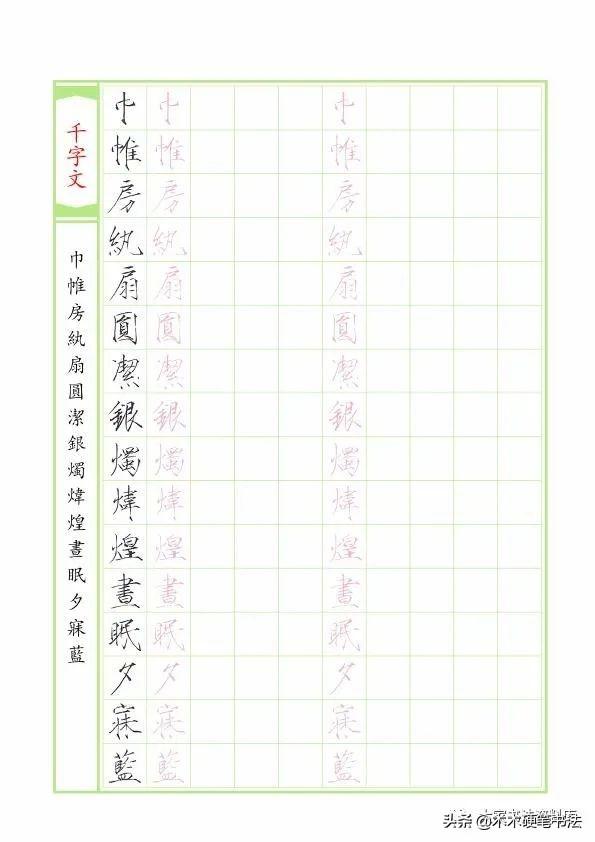 千字文
巾帷房紈扇圓潔銀燭煒煌晝眠夕寐藍
巾 巾 巾
帷 帷 帷
房 房 房
紈 紈 紈
扇 扇 扇
圓 圓 圓
潔 潔 潔
銀 銀 銀
燭 燭 燭
煒 煒 煒
煌 煌 煌
晝 晝 晝
眠 眠 眠
夕 夕 夕
寐 寐 寐
藍 藍 藍
头条 @木木硬笔书法